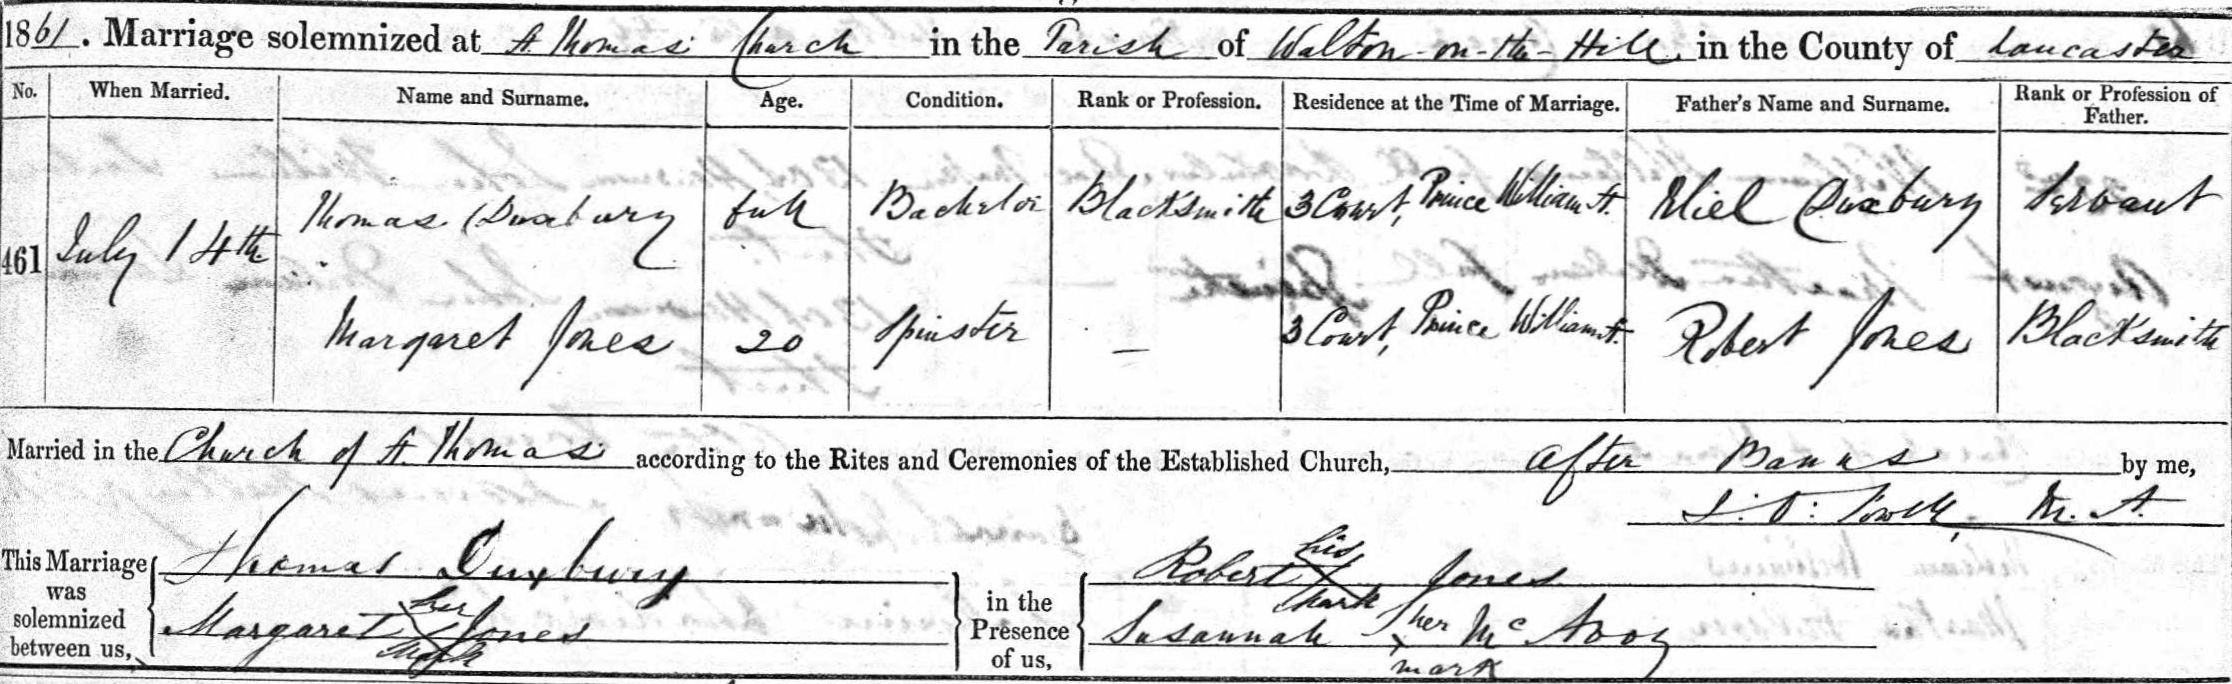 1861. Marriage solemnized at St Thomas' Church in the Parish of Walton-on-the-Hill in the County of Lancaster
No. When Married. Name and Surname. Age. Condition. Rank or Profession. Residence at the Time of Marriage. Father's Name and Surname. Rank or Profession of Father.
461 July 14th Thomas Duxbury full Bachelor Blacksmith 3 Court, Prince William St. Eliel Duxbury Servant
Margaret Jones 20 Spinster — 3 Court, Prince William St. Robert Jones Blacksmith
Married in the Church of St. Thomas according to the Rites and Ceremonies of the Established Church, after Banns by me,
M. A.
This Marriage was solemnized between us, Thomas Duxbury in the Presence of us, Robert his X mark Jones
Margaret her X mark Jones Susannah her X mark McAvoy